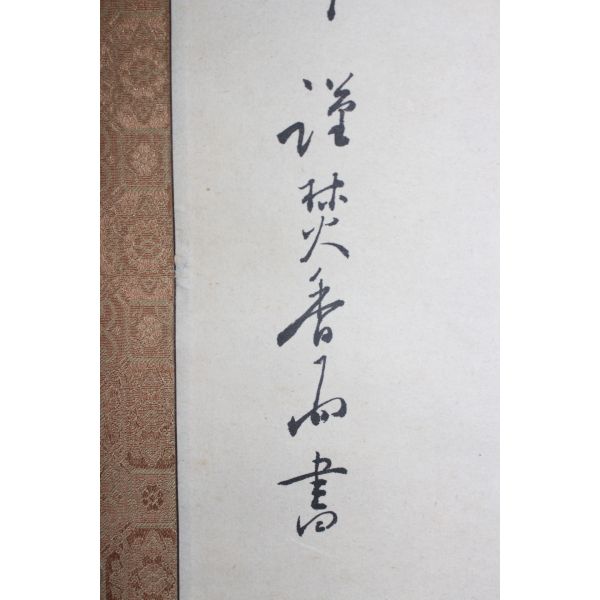 謹焚香而書